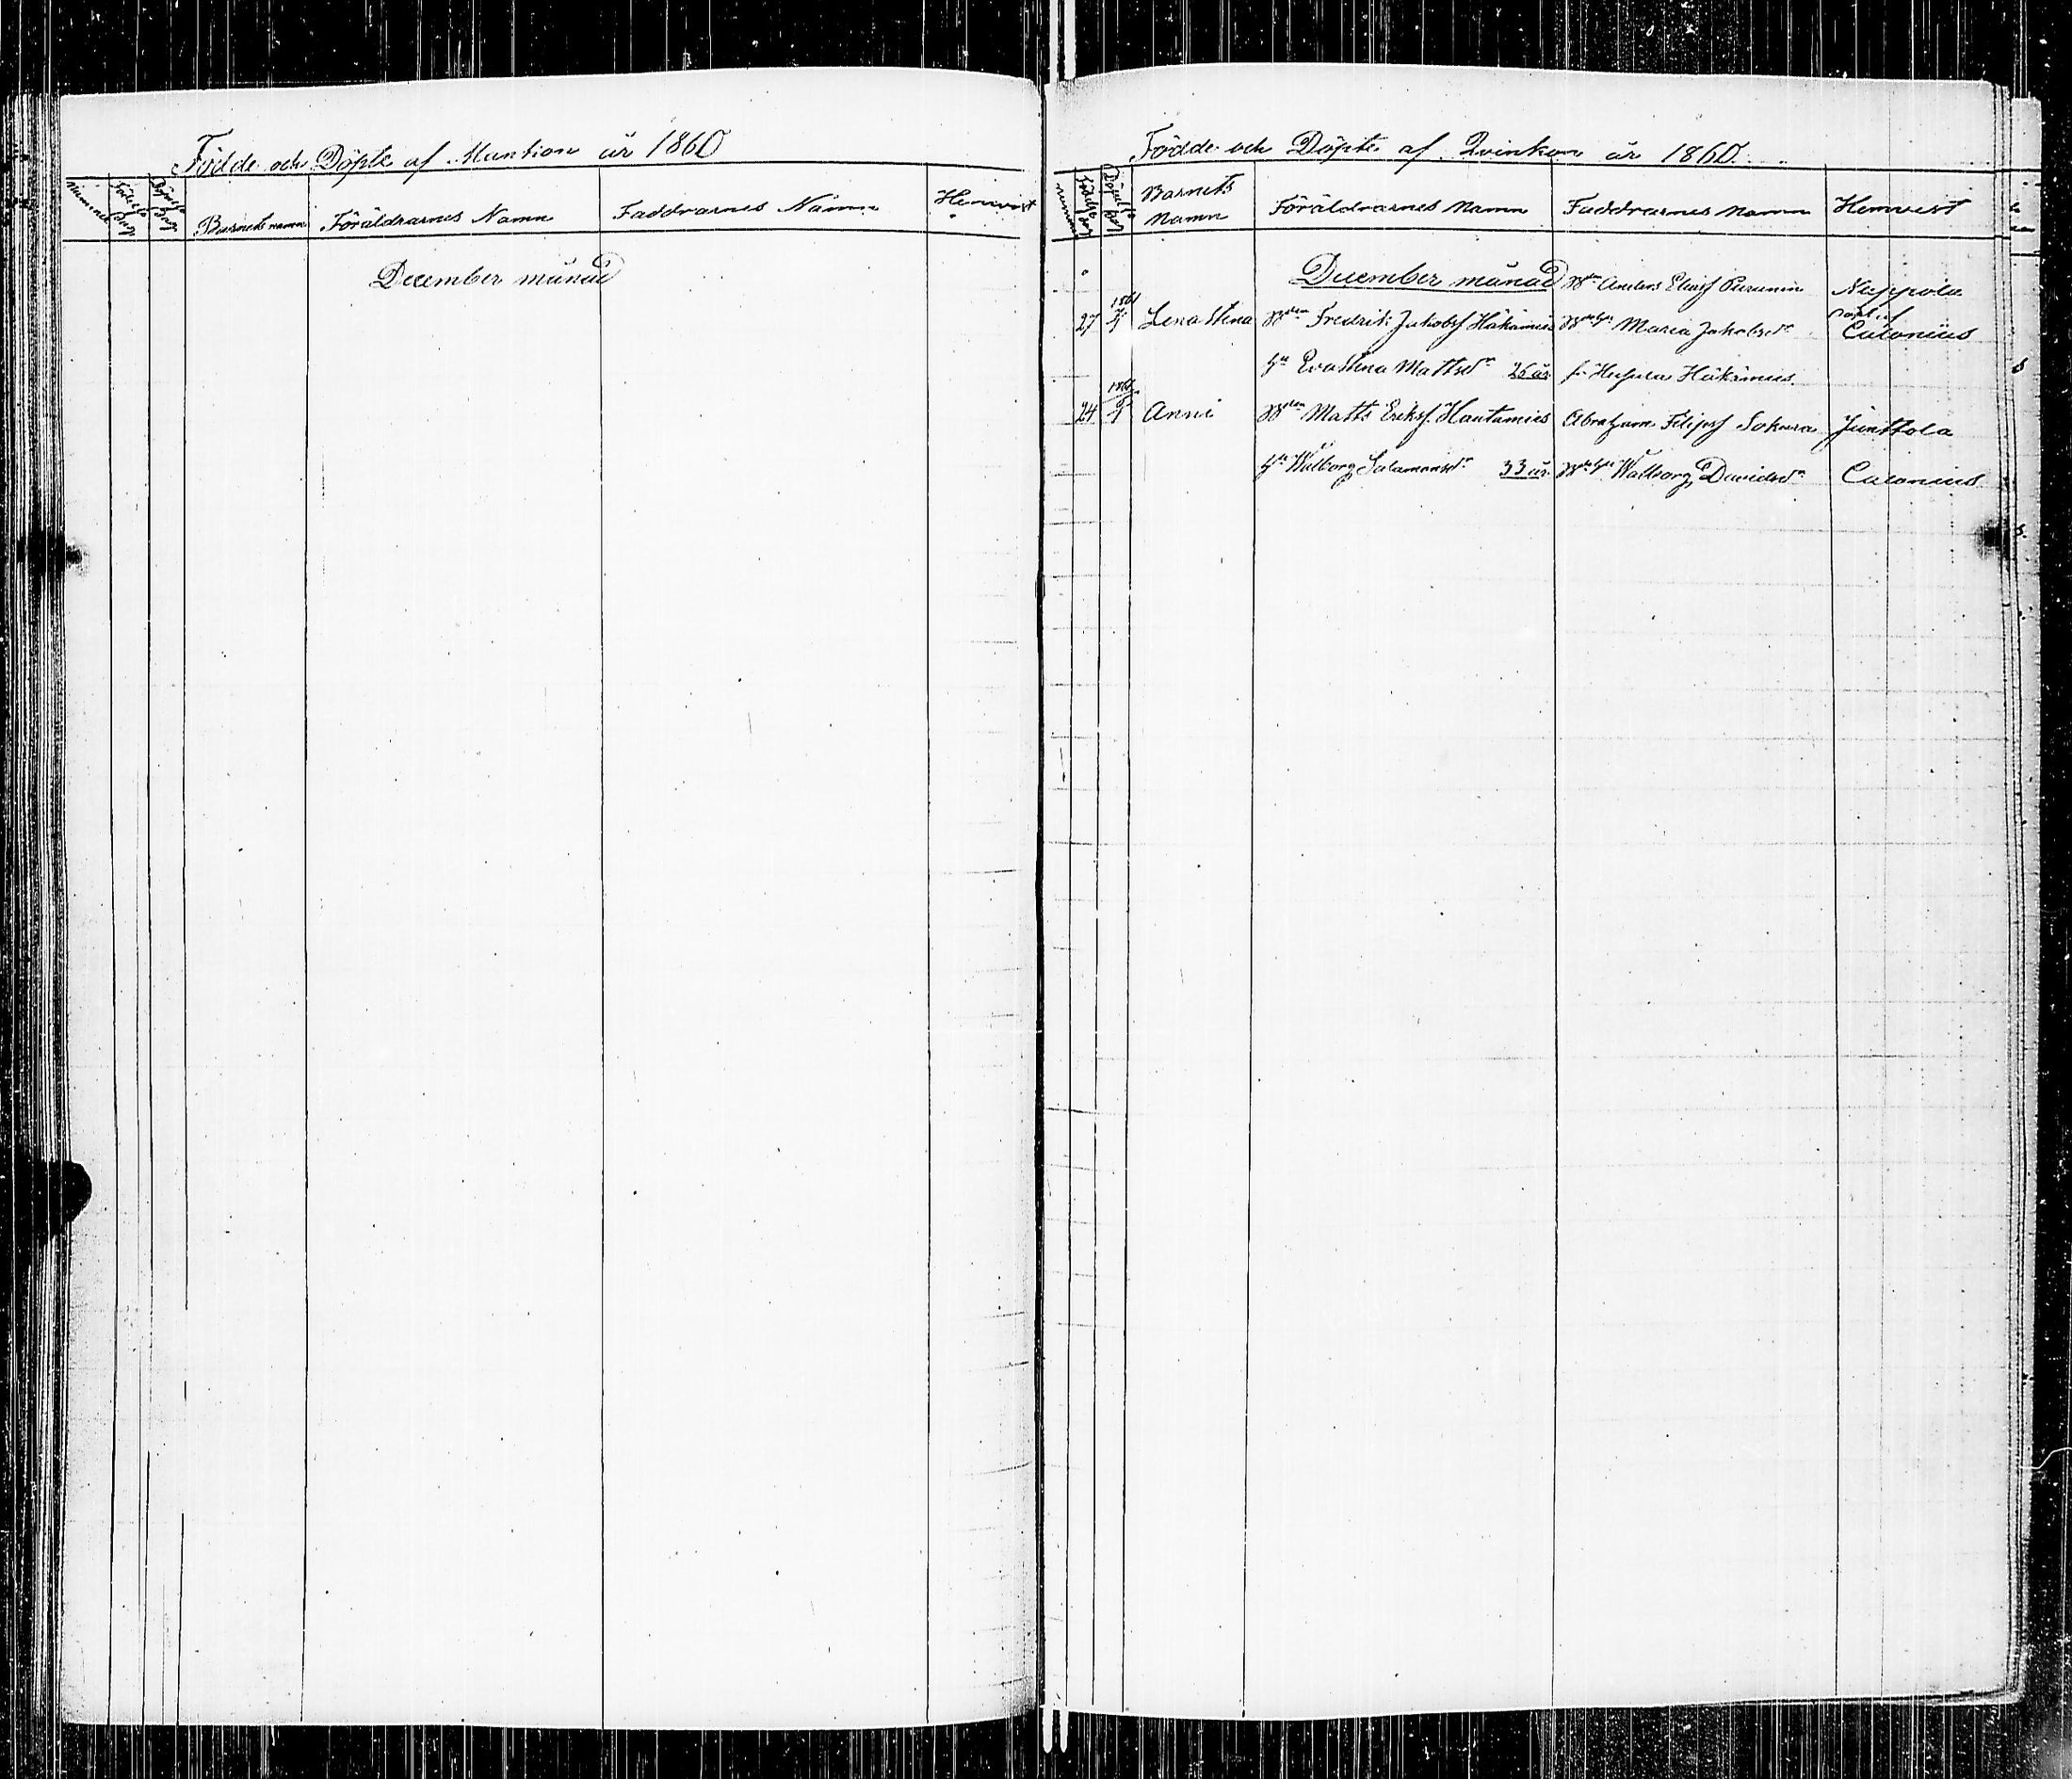 Födde och Döpte af Mankion år 1860
Nummer Födelse Dag Döpelse Dag Barnets namn Föräldrarnes Namn Faddrarnes Namn Hemvist
December månad
Födde och Döpte af Qvinkön år 1860
nummer Födelse Dag Döpelse Dag Barnets Namn Föräldrarnes Namn Faddrarnes Namn Hemvist
December månad Anders Eliasf Purunen Nuppola
27 1861 Lena Stina Fredrik Jakobsf Häkämies Maria Jakobsdr Calonius
Hu Eva Stina Mattsdr 26 år Häkämies
24 1861 Anni Matts Eriksf. Hautamies Abraham Filipsf Sokura Junttola
Hu Walborg Salamonsdr 33 år Walborg Davidsdr Calonius